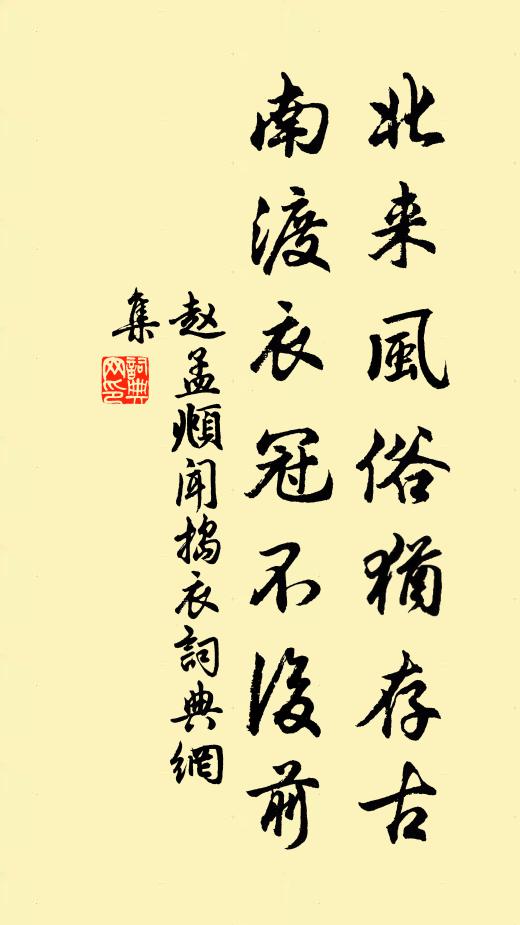 北来風俗猶存古
南渡衣冠不復前
赵孟頫聞搗衣詞典網
集
詞典
网印